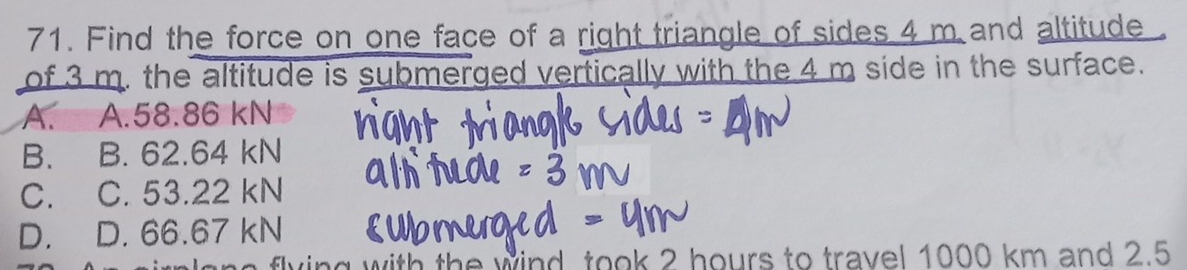 71. Find the force on one face of a right triangle of sides 4 m and altitude
of 3 m. the altitude is submerged vertically with the 4 m side in the surface.
A. A.58.86 kN
right triangle sides = 4m
B. B. 62.64 kN
altitude = 3 m
C. C. 53.22 kN
submerged = 4m
D. D. 66.67 kN
flying with the wind took 2 hours to travel 1000 km and 2.5